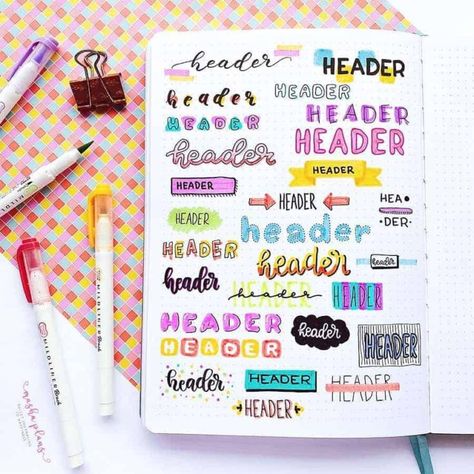 header
HEADER
header
HEADER
HEADER
HEADER
HEADER
header
HEADER
HEADER
HEADER
HEA
DER
HEADER
header
HEADER
header
header
header
HEADER
header
HEADER
HEADER
header
HEADER
HEADER
header
HEADER
HEADER
HEADER
MILDLINER
MILDLINER